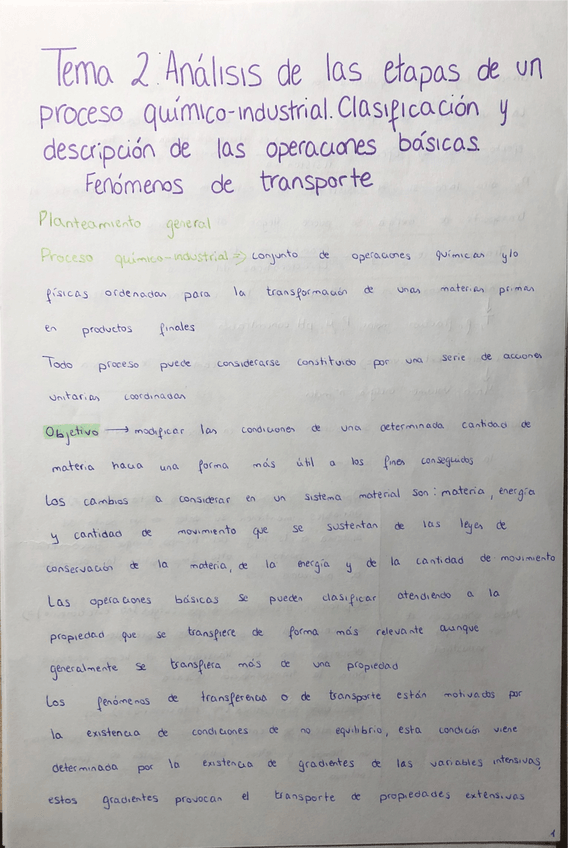 Tema 2. Análisis de las etapas de un
proceso químico-industrial. Clasificación y
descripción de las operaciones básicas.
Fenómenos de transporte
Planteamiento general
Proceso químico-industrial => conjunto de operaciones químicas y/o
físicas ordenadas para la transformación de unas materias primas
en productos finales
Todo proceso puede considerarse constituido por una serie de acciones
unitarias coordinadas
Objetivo → modificar las condiciones de una determinada cantidad de
materia hacia una forma más útil a los fines conseguidos
Los cambios a considerar en un sistema material son: materia, energía
y cantidad de movimiento que se sustentan de las leyes de
conservación de la materia, de la energía y de la cantidad de movimiento
Las operaciones básicas se pueden clasificar atendiendo a la
propiedad que se transfiere de forma más relevante aunque
generalmente se transfiera más de una propiedad
Los fenómenos de transferencia o de transporte están motivados por
la existencia de condiciones de no equilibrio, esta condición viene
determinada por la existencia de gradientes de las variables intensivas,
estos gradientes provocan el transporte de propiedades extensivas
1